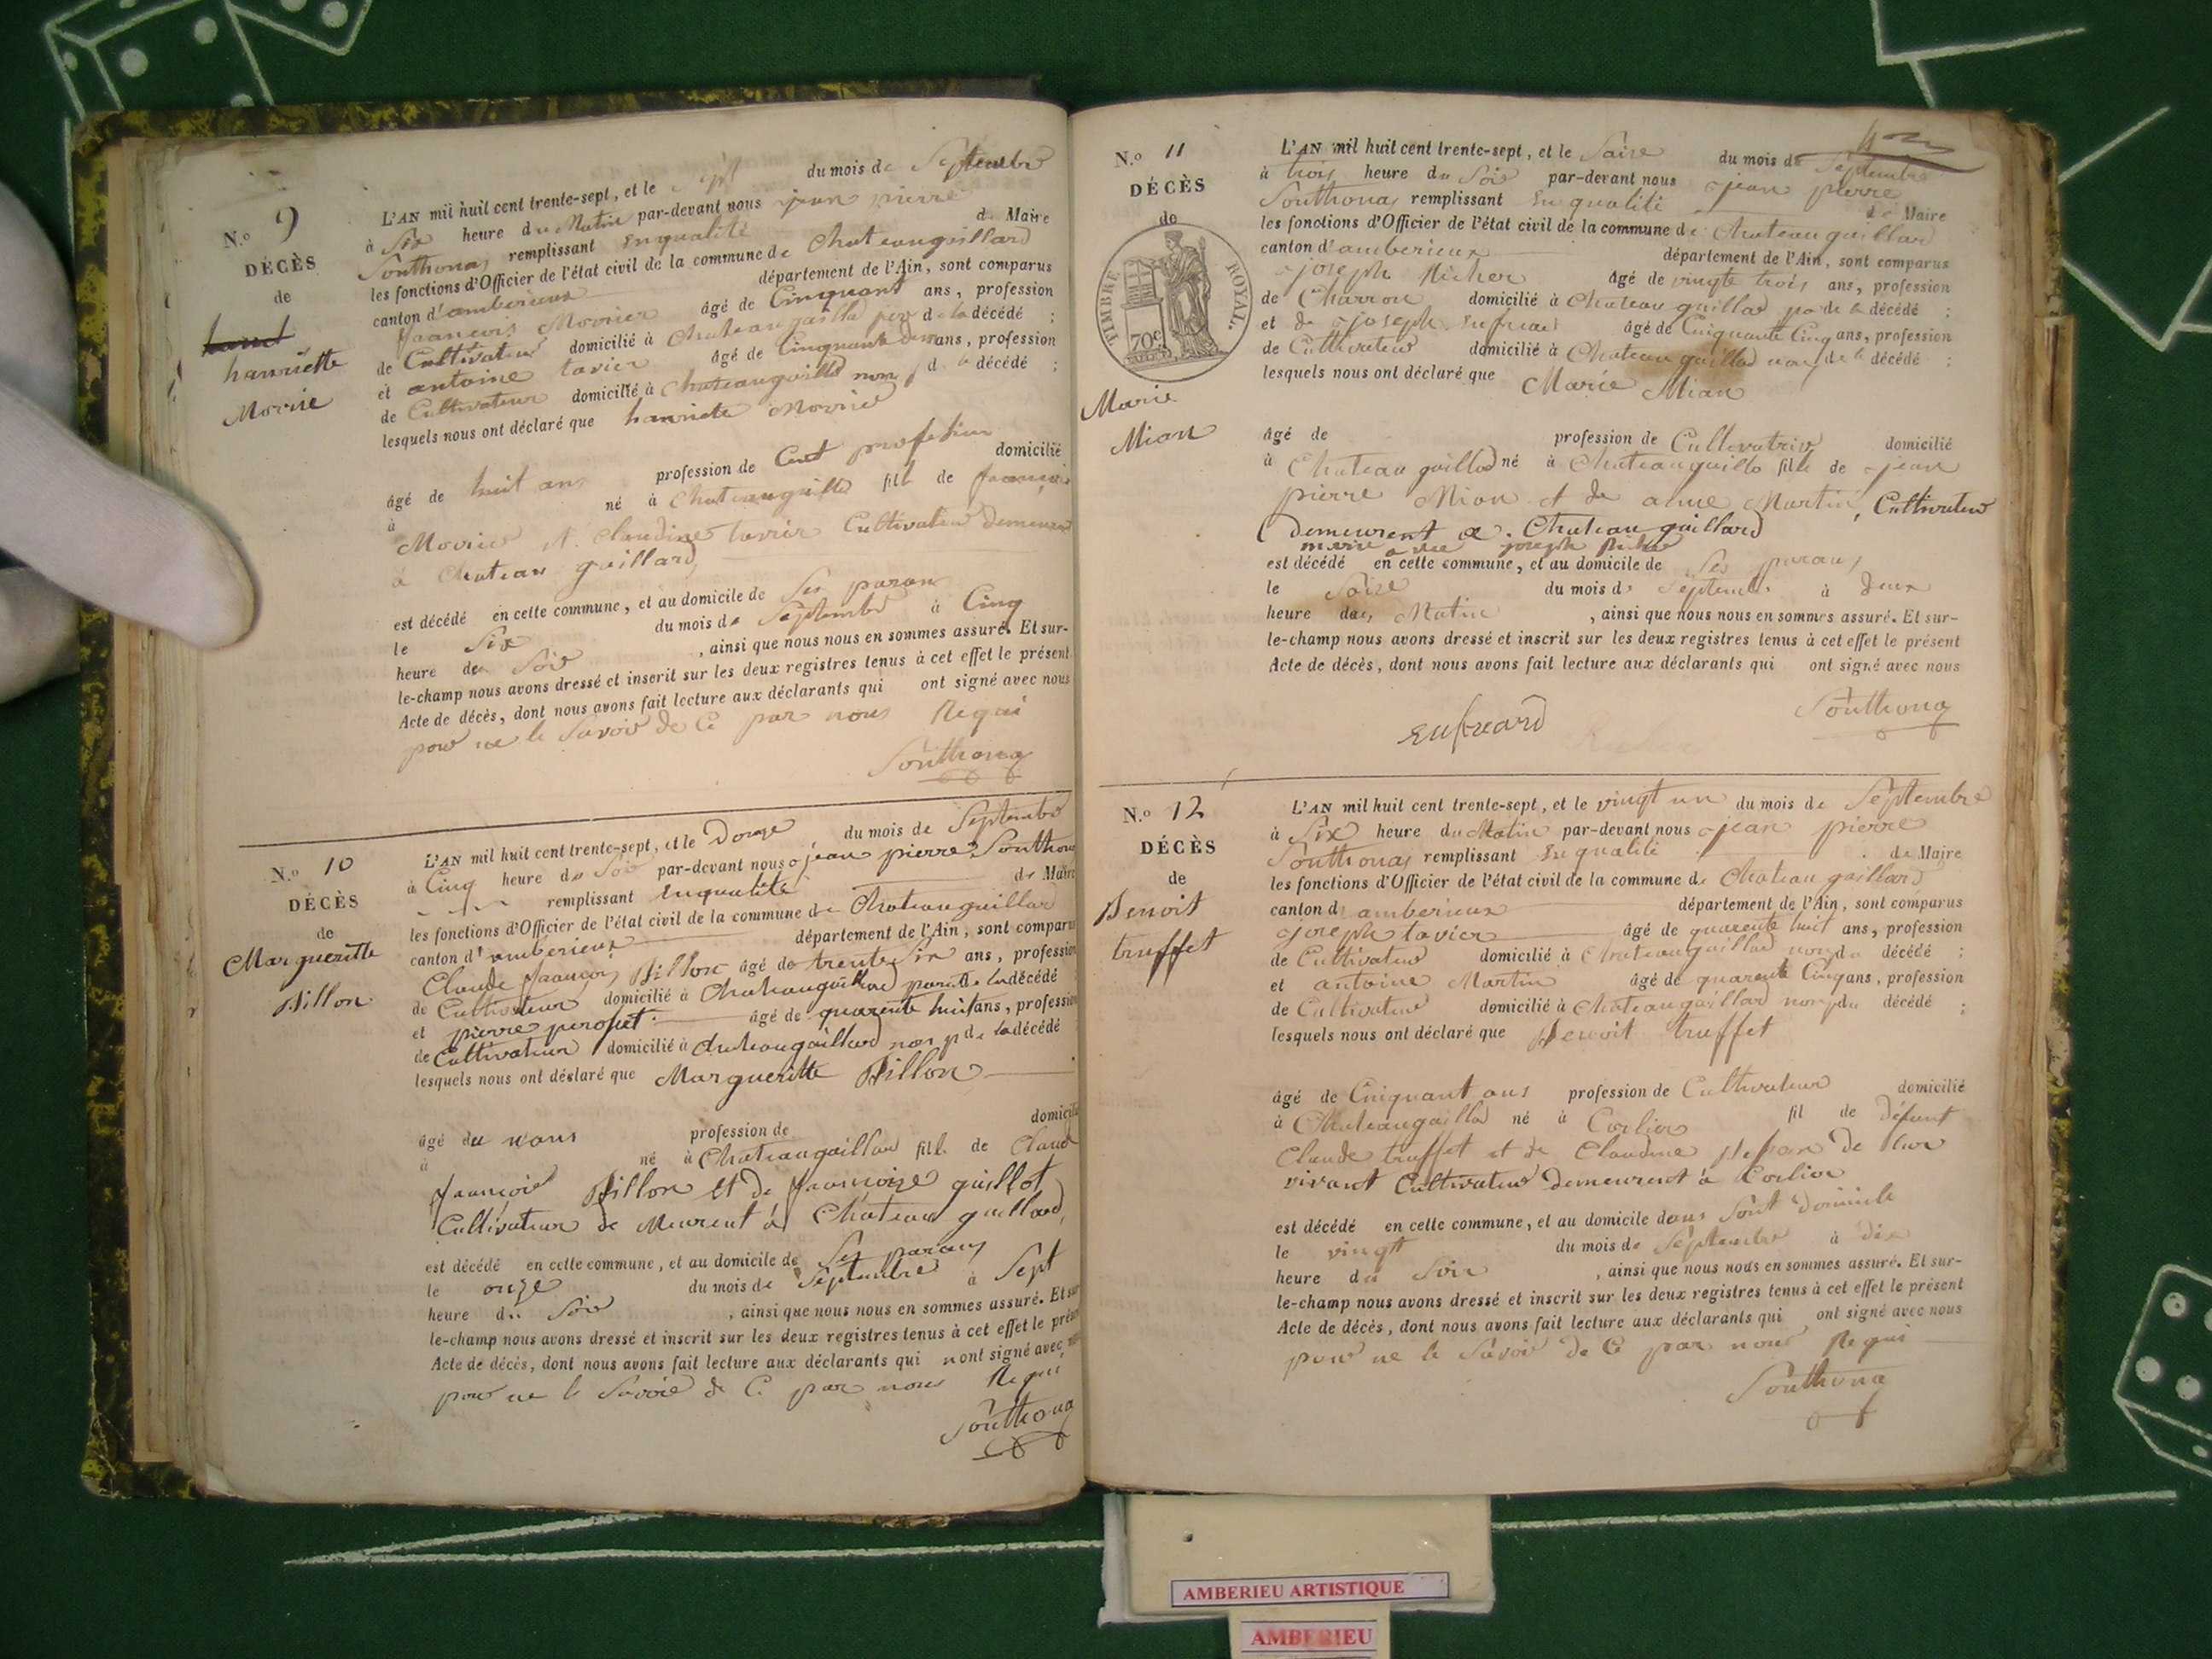 N.º 9
DÉCÈS
de
henriette
Morrie
L'AN mil huit cent trente-sept, et le sept du mois de Septembre
à Six heure du Matin par-devant nous jean pierre
Southonas remplissant En qualité de Maire
les fonctions d'Officier de l'état civil de la commune de Chateaugaillard
canton d'amberieux département de l'Ain, sont comparus
francois âgé de Cinquant ans, profession
de Cultivateur domicilié à Chateaugailla de la décédé ;
et antoine tavier âgé de Cinquante ans, profession
de Cultivateur domicilié à Chateaugailld non p de la décédé ;
lesquels nous ont déclaré que
âgé de huit ans profession de domicilié
à né à Chateaugailld fille de
et Claudine tavier Cultivateur
à Chateau gaillard
est décédé en cette commune, et au domicile de Ses paran
le Six du mois de Septembre à Cinq
heure de Soir , ainsi que nous nous en sommes assuré. Et sur-
le-champ nous avons dressé et inscrit sur les deux registres tenus à cet effet le présent
Acte de décès, dont nous avons fait lecture aux déclarants qui ont signé avec nous
pour ne le Savoir de Ce par nous Requi
Southonas
N.º 10
DÉCÈS
de
Margueritte
Billon
L'AN mil huit cent trente-sept, et le Douze du mois de Septembre
à Cinq heure du Soir par-devant nous jean pierre Southonas
remplissant Enqualité de Maire
les fonctions d'Officier de l'état civil de la commune de Chateaugaillard
canton d'amberieux département de l'Ain, sont comparus
Claude françois Billon âgé de trente Six ans, profession
de Cultivateur domicilié à Chateaugaillard de la décédé
et pierre perosset âgé de quarente huit ans, profession
de Cultivateur domicilié à Chateaugaillard non p de la décédé
lesquels nous ont déclaré que Margueritte Billon
âgé de profession de domicilié
à né à Chateaugaillard fille de Claude
françois Billon et de françoize guillot
Cultivateur de Meurent à Chateau gaillard
est décédé en cette commune, et au domicile de Ses parans
le onze du mois de Septembre à Sept
heure du Soir , ainsi que nous nous en sommes assuré. Et sur
le-champ nous avons dressé et inscrit sur les deux registres tenus à cet effet le présen
Acte de décès, dont nous avons fait lecture aux déclarants qui n ont signé avec nous
pour ne le Savoir de Ce par nous Requi
Southonas
N.º 11
DÉCÈS
de
TIMBRE ROYAL.
70c
Marie
Mian
L'AN mil huit cent trente-sept, et le Saise du mois de Septembre
à trois heure du Soir par-devant nous jean pierre
Southonas remplissant En qualité de Maire
les fonctions d'Officier de l'état civil de la commune de Chateau gaillard
canton d'amberieux département de l'Ain, sont comparus
joseph Richer âgé de vingte trois ans, profession
de Charron domicilié à Chateau gaillad de la décédé ;
et de joseph âgé de Cinquante Cinq ans, profession
de Cultivateur domicilié à Chateau gaillad non p de la décédé ;
lesquels nous ont déclaré que Marie Mian
âgé de profession de Cultivatrice domicilié
à Chateau gaillad né à Chateaugailla fille de jean
pierre Mian et de anne Martin, Cultivateur
Demeurent a Chateau gaillard
marie avec joseph Richer
est décédé en cette commune, et au domicile de Ses parans
le Saise du mois de Septembre à Deux
heure du Matin , ainsi que nous nous en sommes assuré. Et sur-
le-champ nous avons dressé et inscrit sur les deux registres tenus à cet effet le présent
Acte de décès, dont nous avons fait lecture aux déclarants qui ont signé avec nous
Southonas
N.º 12
DÉCÈS
de
Benoit
truffet
L'AN mil huit cent trente-sept, et le vingt un du mois de Septembre
à Six heure du Matin par-devant nous jean pierre
Southonas remplissant En qualité de Maire
les fonctions d'Officier de l'état civil de la commune de Chateau gaillard
canton d amberieux département de l'Ain, sont comparus
joseph tavier âgé de quarente huit ans, profession
de Cultivateur domicilié à Chateaugaillard non p du décédé ;
et antoine Martin âgé de quarente Cinq ans, profession
de Cultivateur domicilié à Chateaugaillard non p du décédé ;
lesquels nous ont déclaré que Benoit truffet
âgé de Cinquant ans profession de Cultivateur domicilié
à Chateaugaillad né à Corlier fil de défunt
Claude truffet et de Claudine de leur
vivant Cultivateur Demeurent à Corlier
est décédé en cette commune, et au domicile dans Sont Domicile
le vingt du mois de Septembre à dix
heure du Soir , ainsi que nous nous en sommes assuré. Et sur-
le-champ nous avons dressé et inscrit sur les deux registres tenus à cet effet le présent
Acte de décès, dont nous avons fait lecture aux déclarants qui ont signé avec nous
pour ne le Savoir de Ce par nous Requi
Southonas
AMBERIEU ARTISTIQUE
AMBERIEU